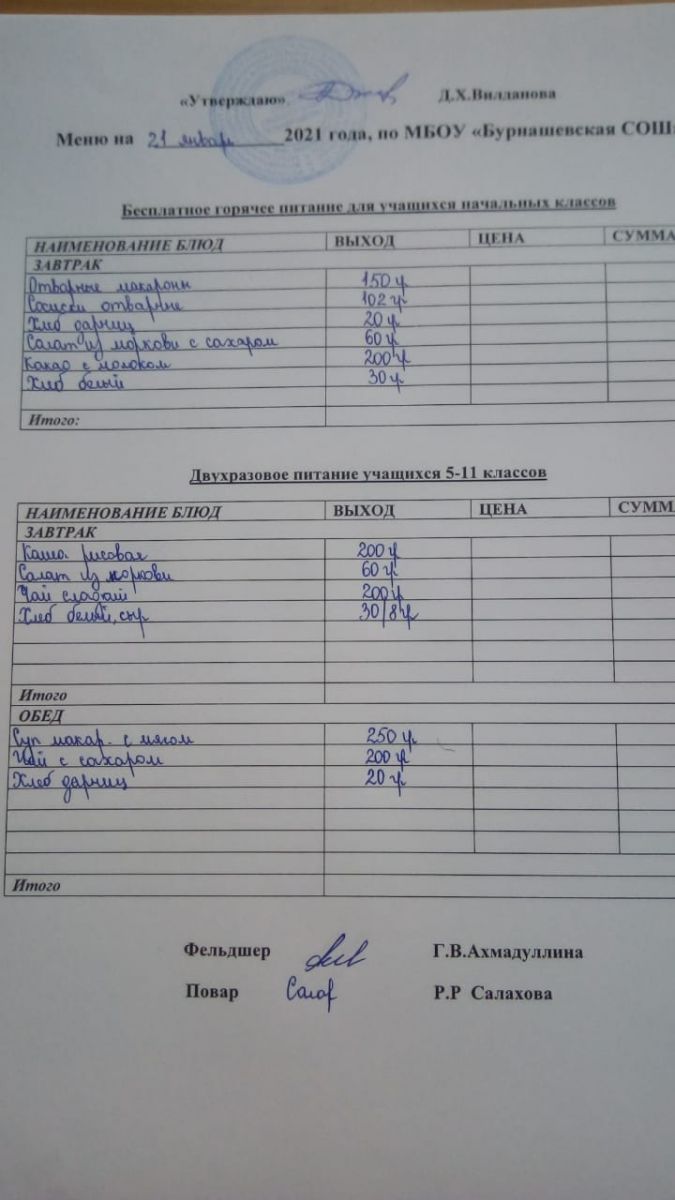 «Утверждаю» Д.Х.Вилданова
Меню на 21 январь 2021 года, по МБОУ «Бурнашевская СОШ»
Бесплатное горячее питание для учащихся начальных классов
НАИМЕНОВАНИЕ БЛЮД ВЫХОД ЦЕНА СУММА
ЗАВТРАК
Отварные макароны 150 г
Сосиски отварные 102 г
Хлеб дарниц 20 г
Салат из моркови с сахаром 60 г
Какао с молоком 200 г
Хлеб белый 30 г
Итого:
Двухразовое питание учащихся 5-11 классов
НАИМЕНОВАНИЕ БЛЮД ВЫХОД ЦЕНА СУММА
ЗАВТРАК
Каша рисовая 200 г
Салат из моркови 60 г
Чай сладкий 200 г
Хлеб белый, сыр 30/8 г
Итого
ОБЕД
Суп макар. с мясом 250 г
Чай с сахаром 200 г
Хлеб дарниц 20 г
Итого
Фельдшер Г.В.Ахмадуллина
Повар Салах Р.Р Салахова